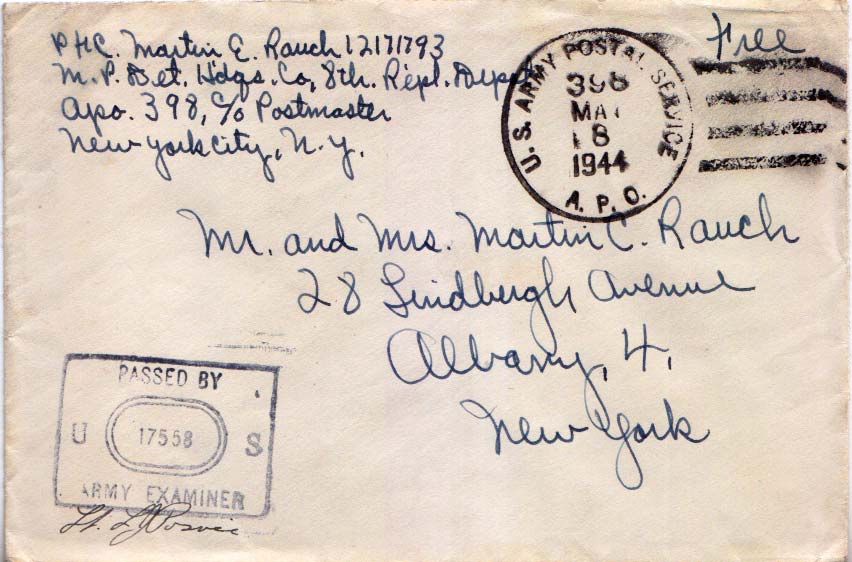 PFC. Martin E. Rauch 12171793
M.P. Det. Hdqs. Co, 8th. Repl. Depot
Apo. 398, c/o Postmaster
New York City, N.Y.
Free
U.S. ARMY POSTAL SERVICE
398
18
1944
A.P.O.
Mr. and Mrs. Martin C. Rauch
28 Lindbergh Avenue
Albany, 4,
New York
PASSED BY
U 17558 S
ARMY EXAMINER
Lt.